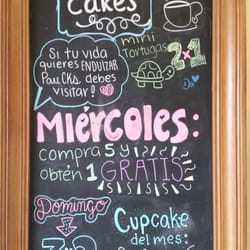 Cakes
Si tu vida
quieres ENDULZAR
PauCKs debes
visitar!
mini
Tortugas
2x1
MIÉRCOLES:
compra 5 y
obtén 1 GRATIS
Domingo
Cupcake
del mes: